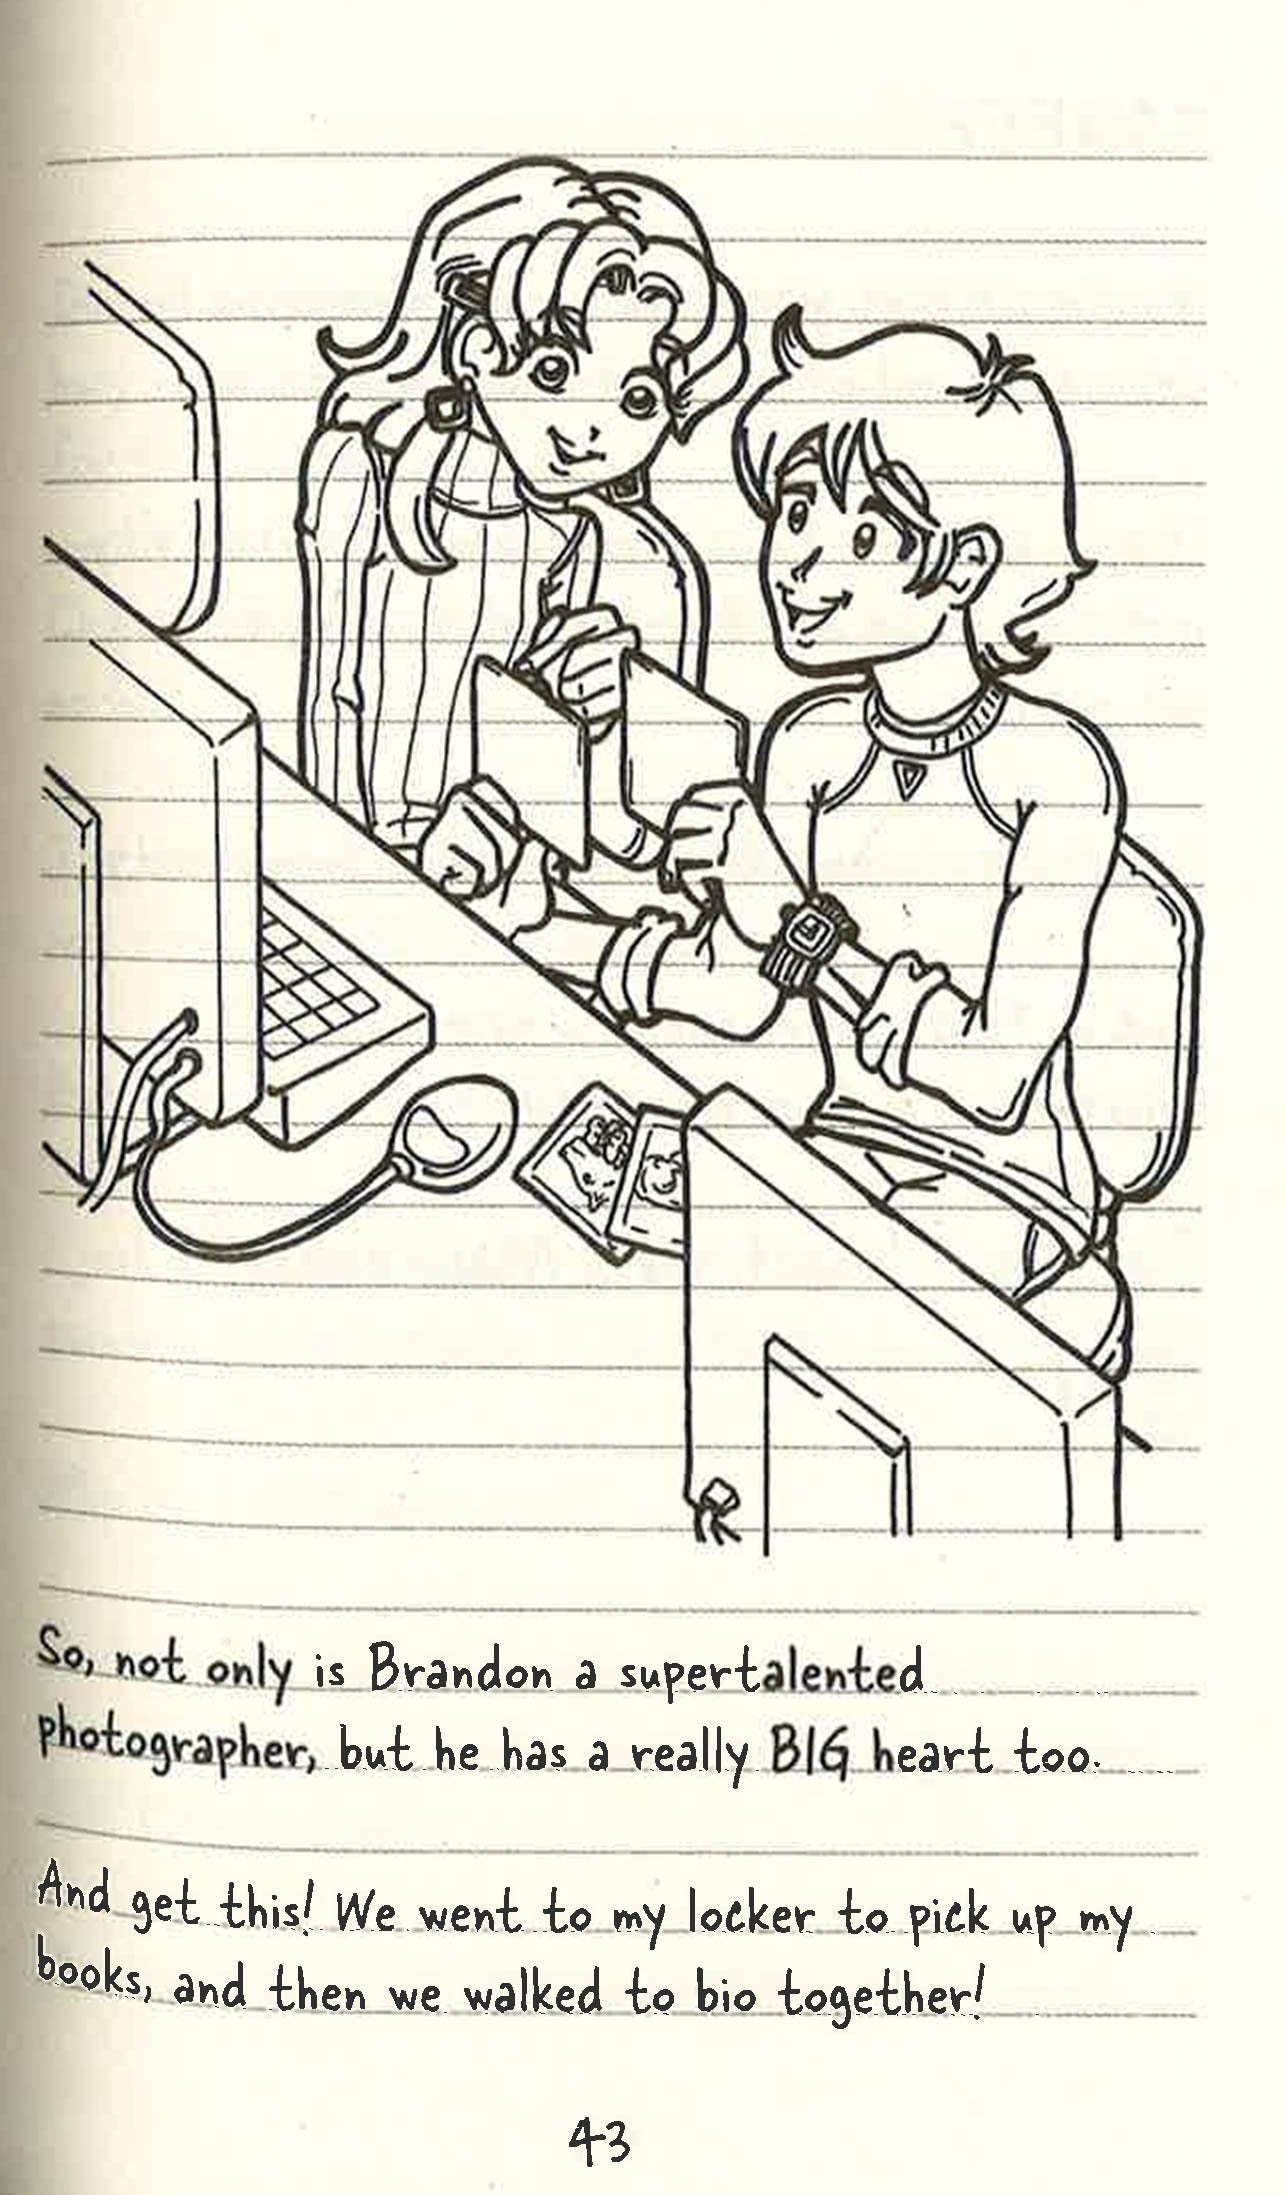 So, not only is Brandon a supertalented
photographer, but he has a really BIG heart too.
And get this! We went to my locker to pick up my
books, and then we walked to bio together!
43